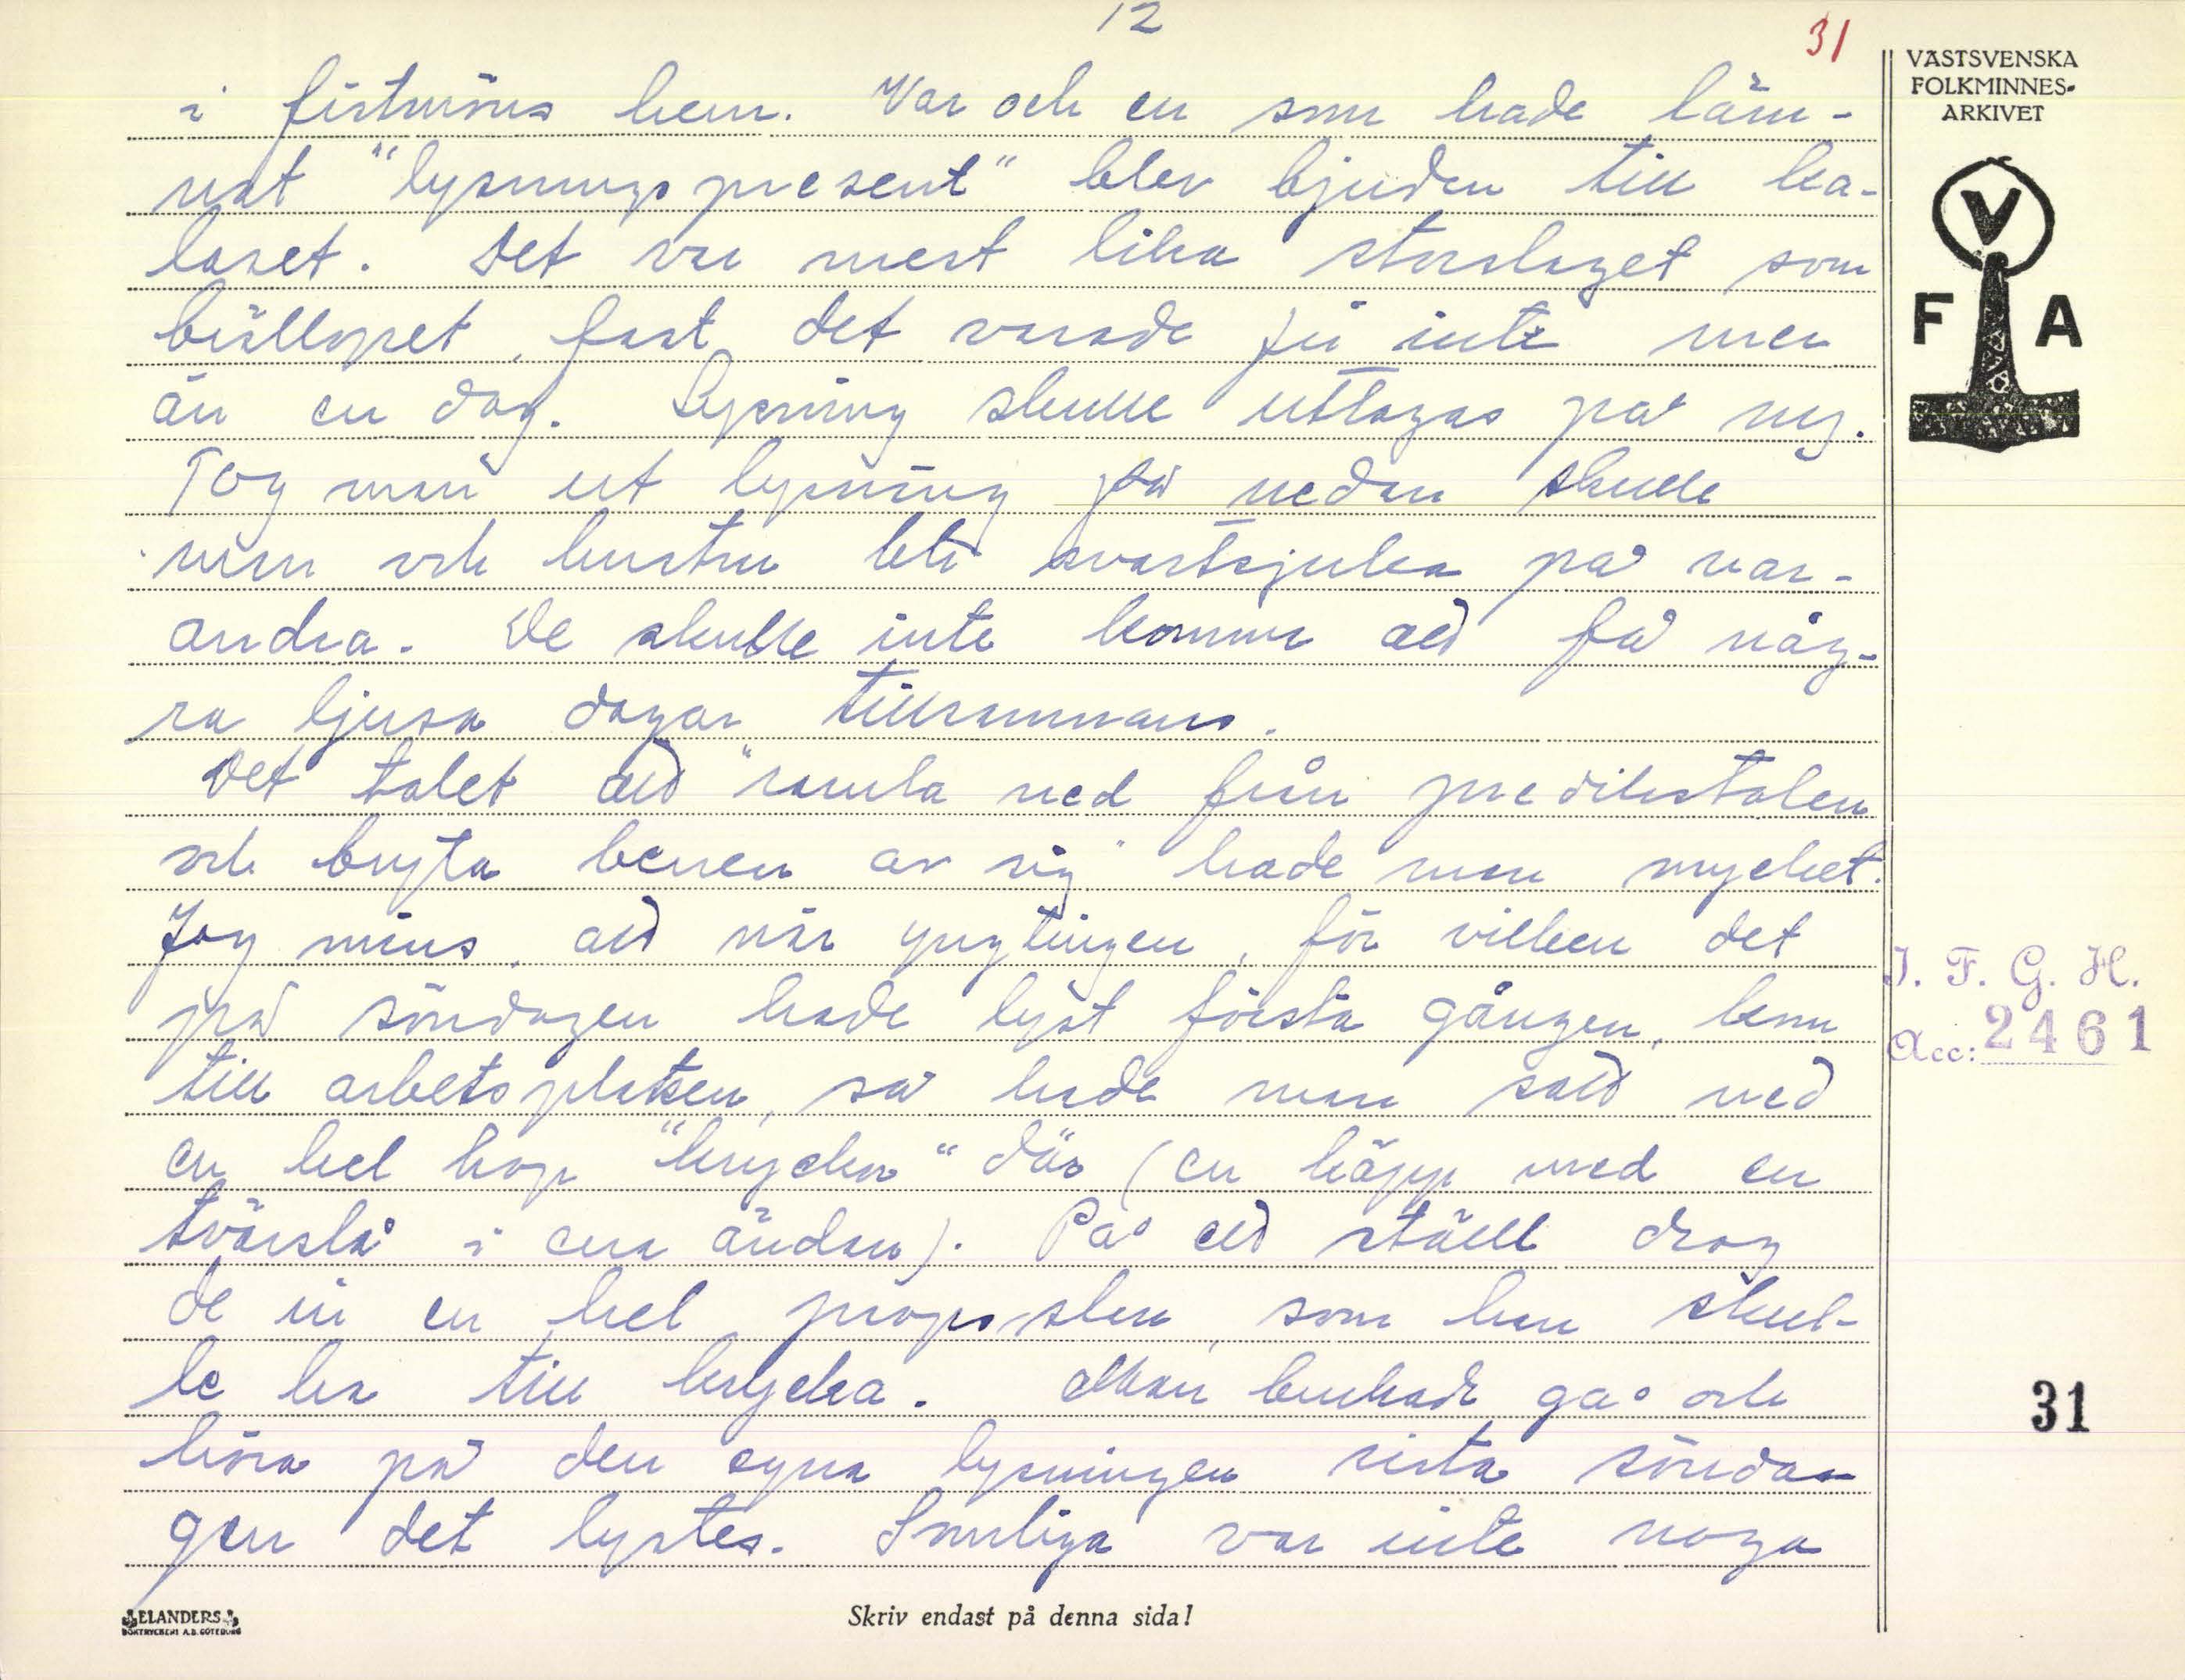 12
31
VÄSTSVENSKA
FOLKMINNES-
ARKIVET
V
F A
i fästmöns hem. Var och en som hade läm-
nat "lysningspresent" blev bjuden till ka-
laset. Det var mest lika storslaget som
bröllopet, fast det varade ju inte mer
än en dag. Lysning skulle uttagas på ny.
Tog man ut lysning på nedan skulle
man och hustru bli svartsjuka på var-
andra. De skulle inte komma att få någ-
ra ljusa dagar tillsammans.
Det talet att "ramla ned från predikstolen
och bryta benen av sig" hade man mycket.
Jag minns, att när ynglingen, för vilken det
på söndagen hade lyst första gången, kom
till arbetsplatsen, så hade man satt ned
en hel hop "kryckor" där (en käpp med en
tvärslå i ena ändan). På ett ställ drog
de in en hel propsslen, som han skul-
le ha till krycka. Man brukade gå och
höra på den egna lysningen sista sönda-
gen det lystes. Somliga var inte noga
J. F. G. H.
Acc: 2461
31
ELANDERS
BOKTRYCKERI A.B. GÖTEBORG
Skriv endast på denna sida!